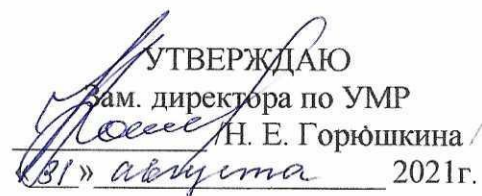 УТВЕРЖДАЮ
Зам. директора по УМР
/Н. Е. Горюшкина/
«31» августа 2021г.